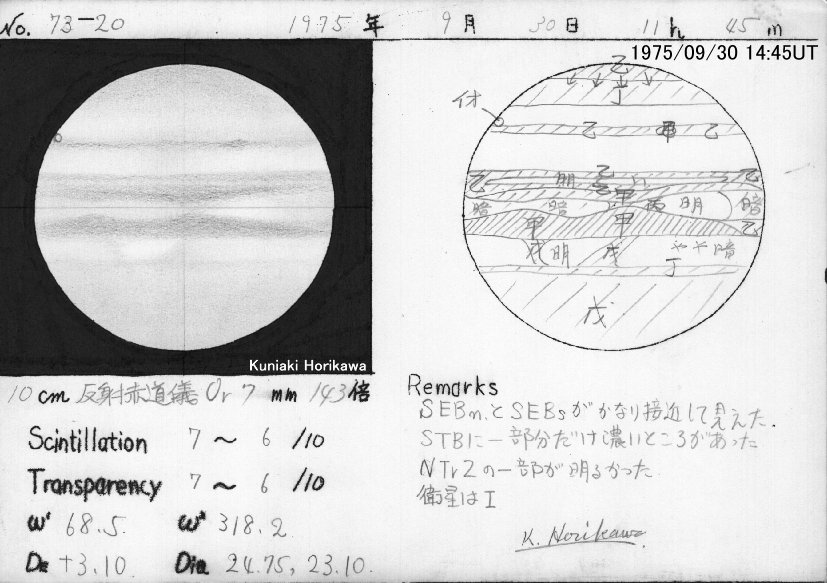 No. 73-20 1975年 9月 30日 11h 45m
1975/09/30 14:45UT
イオ
乙
丁
乙 甲 乙
乙
乙 明 乙
甲
暗 暗 明 暗
甲 甲 乙
戊 明 戊 やや暗
丁
戊
Kuniaki Horikawa
10cm 反射赤道儀 Or 7mm 143倍
Scintillation 7~6/10
Transparency 7~6/10
ω¹ 68.5 ω² 318.2
DE +3.10 Dia 24.75, 23.10
Remarks
SEBnとSEBsがかなり接近して見えた.
STBに一部分だけ濃いところがあった
NTrZの一部が明るかった
衛星はI
K. Horikawa